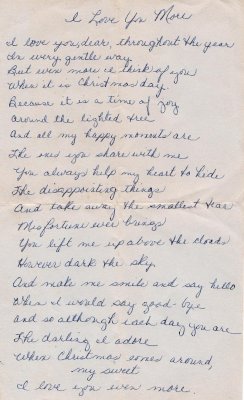 I Love You More
I love you, dear, throughout the year
In every gentle way
But even more I think of you
When it is Christmas day.
Because it is a time of joy
around the lighted tree
And all my happy moments are
The ones you share with me
You always help my heart to hide
The disappointing things
And take away the smallest tear
Misfortune ever brings
You lift me up above the clouds
However dark the sky
And make me smile and say hello
When I would say good-bye
and so although each day you are
The darling I adore
When Christmas comes around,
my sweet
I love you even more.